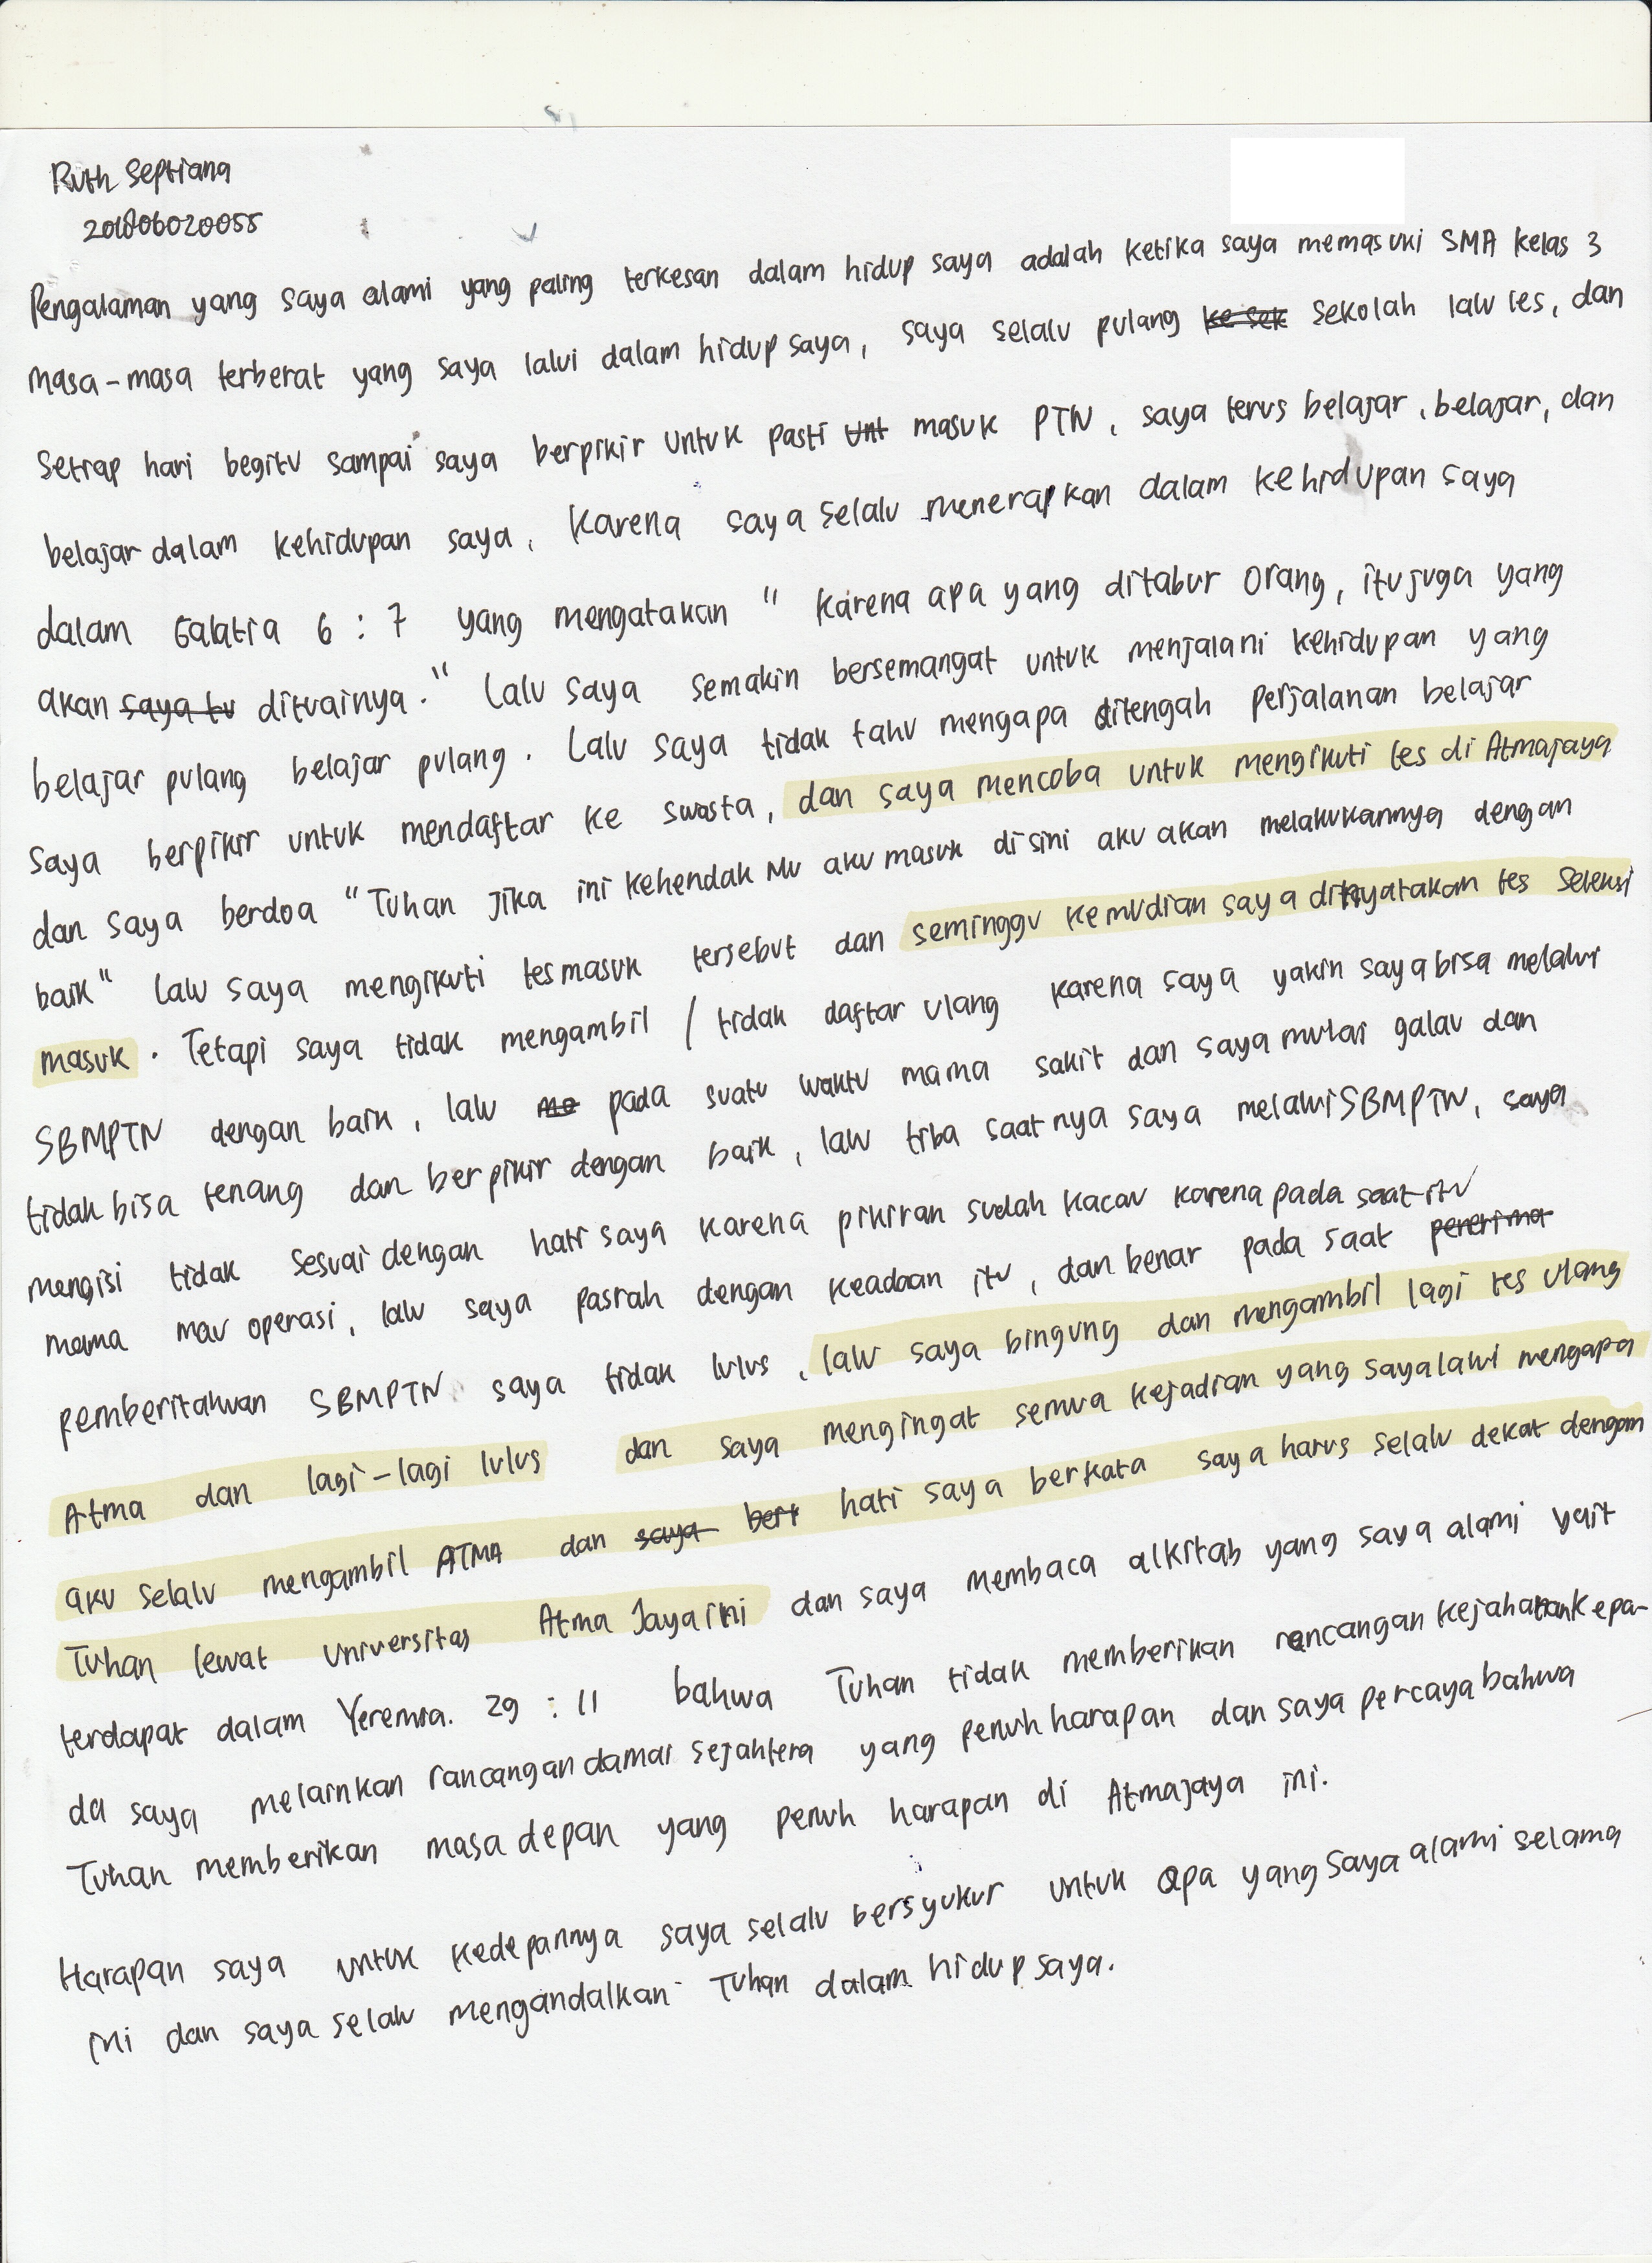 Ruth Septiana
201806020055
Pengalaman yang saya alami yang paling terkesan dalam hidup saya adalah ketika saya memasuki SMA kelas 3
masa-masa terberat yang saya lalui dalam hidup saya, saya selalu pulang ke sek sekolah lalu les, dan
setiap hari begitu sampai saya berpikir untuk pasti unt masuk PTN, saya terus belajar, belajar, dan
belajar dalam kehidupan saya, karena saya selalu menerapkan dalam kehidupan saya
dalam Galatia 6 : 7 yang mengatakan " karena apa yang ditabur orang, itu juga yang
akan saya tu dituainya." Lalu saya semakin bersemangat untuk menjalani kehidupan yang
belajar pulang belajar pulang. Lalu saya tidak tahu mengapa ditengah perjalanan belajar
saya berpikir untuk mendaftar ke swasta, dan saya mencoba untuk mengikuti tes di Atmajaya
dan saya berdoa "Tuhan jika ini kehendak Mu aku masuk disini aku akan melakukannya dengan
baik" lalu saya mengikuti tes masuk tersebut dan seminggu kemudian saya dinyatakan tes seleksi
masuk. Tetapi saya tidak mengambil / tidak daftar ulang karena saya yakin saya bisa melalui
SBMPTN dengan baik, lalu ma pada suatu waktu mama sakit dan saya mulai galau dan
tidak bisa tenang dan berpikir dengan baik, lalu tiba saatnya saya melalui SBMPTN, saya
mengisi tidak sesuai dengan hati saya karena pikiran sudah kacau karena pada saat itu
mama mau operasi, lalu saya pasrah dengan keadaan itu, dan benar pada saat penerima
pemberitahuan SBMPTN saya tidak lulus, lalu saya bingung dan mengambil lagi tes ulang
Atma dan lagi-lagi lulus dan saya mengingat semua kejadian yang saya lalui mengapa
aku selalu mengambil ATMA dan saya berk hati saya berkata saya harus selalu dekat dengan
Tuhan lewat universitas Atma Jaya ini dan saya membaca alkitab yang saya alami yait
terdapat dalam Yeremia. 29 : 11 bahwa Tuhan tidak memberikan rancangan kejahatan kepa-
da saya melainkan rancangan damai sejahtera yang penuh harapan dan saya percaya bahwa
Tuhan memberikan masa depan yang penuh harapan di Atmajaya ini.
Harapan saya untuk kedepannya saya selalu bersyukur untuk apa yang saya alami selama
ini dan saya selalu mengandalkan Tuhan dalam hidup saya.